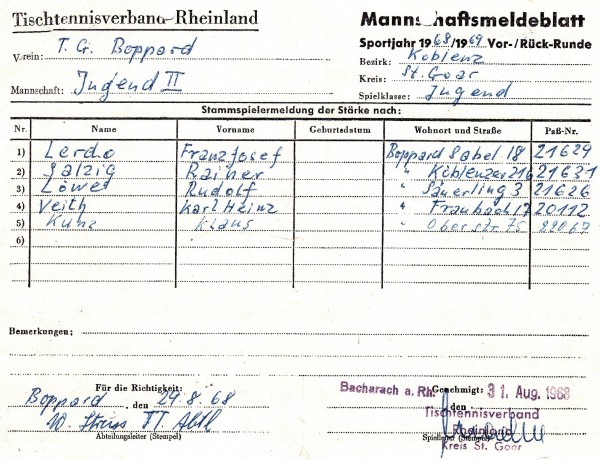 Tischtennisverband Rheinland
Mannschaftsmeldeblatt
Sportjahr 1968/1969 Vor-/Rück-Runde
Verein: T. G. Boppard
Bezirk: Koblenz
Kreis: St. Goar
Mannschaft: Jugend II
Spielklasse: Jugend
Stammspielermeldung der Stärke nach:
Nr. Name Vorname Geburtsdatum Wohnort und Straße Paß-Nr.
1) Lerdo Franz Josef Boppard Sabel 18 21629
2) Salzig Rainer " Koblenzer 21631
3) Löwer Rudolf " Säuerling 3 21626
4) Veith Karl Heinz " Fraubach 17 20112
5) Kunz Klaus " Oberstr. 75
6)
Bemerkungen:
Für die Richtigkeit:
Boppard, den 29.8.68
TT. Abtl
Abteilungsleiter (Stempel)
Bacharach a. Rh. Genehmigt: 31. Aug. 1968
den
Tischtennisverband
Rheinland
Spielleiter (Stempel)
Kreis St. Goar